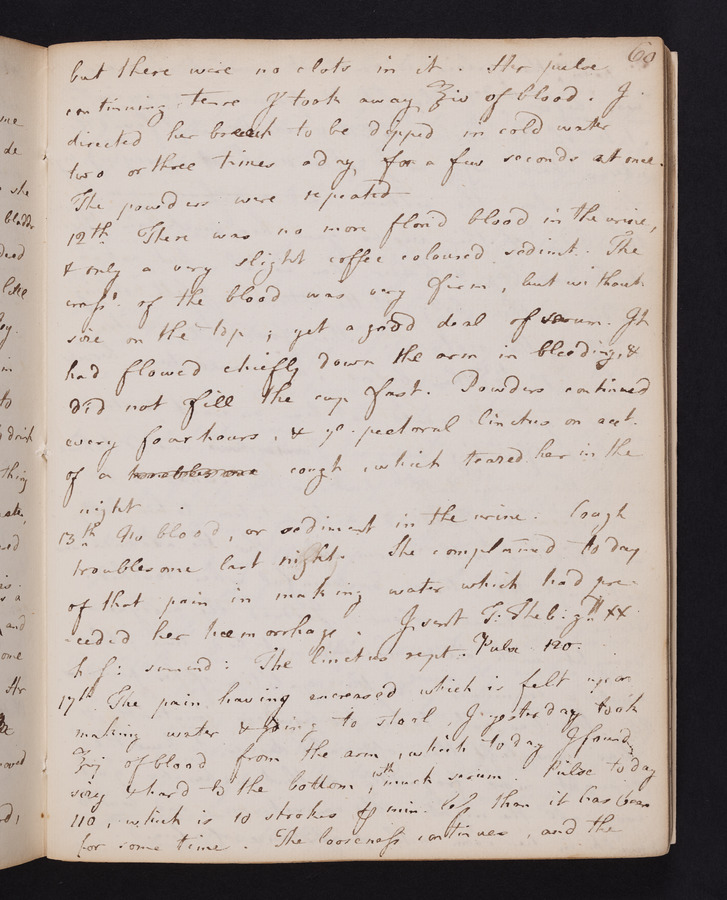 60
but there were no clots in it. Her pulse
continuing tense I took away ℥iv of blood. I
directed her breech to be dipped in cold water
two or three times a day, for a few seconds at once.
The powders were repeated
12th There was no more florid blood in the urine,
& only a very slight coffee coloured sedimt. The
crass. of the blood was very firm, but without
size on the top; yet a good deal of serum. It
had flowed chiefly down the arm in bleeding, &
did not fill the cup fast. Powders continued
every four hours, & ye pectoral linctus on acct.
of a troublesome cough, which teazed her in the
night.
13th No blood, or sediment in the urine. Cough
troublesome last night. She complained to day
of that pain in making water which had pre-
ceded her hæmorrhage. I sent T: Theb: gtt xx
h s: sumend: The linctus rept. Pulse 120.
17th. The pain having encreased which is felt upon
making water & going to stool, I yesterday took
℥vj of blood from the arm, which to day I found
sizy & hard to the bottom, wth much serum. Pulse to day
110, which is 10 strokes ℔ min. less than it has been
for some time. The looseness continues, and the